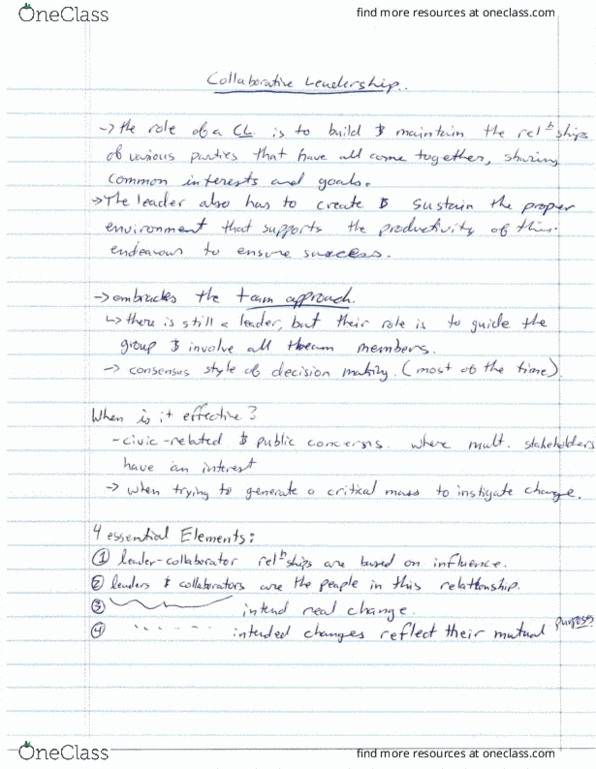 OneClass
find more resources at oneclass.com
Collaborative Leadership..
→ the role of a CL is to build & maintain the relhships
of various parties that have all come together, sharing
common interests and goals.
→ The leader also has to create & sustain the proper
environment that supports the productivity of this
endeavour to ensure success.
→ embraces the team approach.
↳ there is still a leader, but their role is to guide the
group & involve all team members.
→ consensus style of decision making. (most of the time).
When is it effective?
- civic-related & public concerns. where mult. stakeholders
have an interest
→ when trying to generate a critical mass to instigate change.
4 essential Elements:
① leader-collaborator relhships are based on influence.
② leaders & collaborators are the people in this relationship.
③ intend real change.
④ " - - - - - intended changes reflect their mutual purposes
OneClass
find more resources at oneclass.com